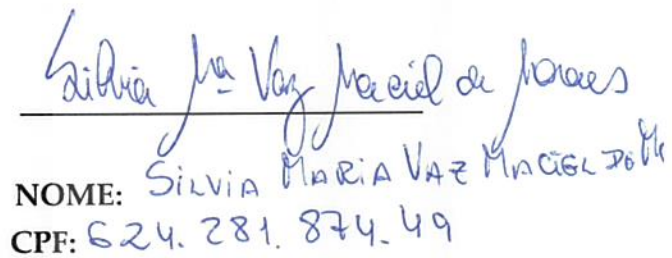 Silvia Mª Vaz Maciel de Moraes
NOME: SILVIA MARIA VAZ MACIEL DE M
CPF: 624.281.874-49